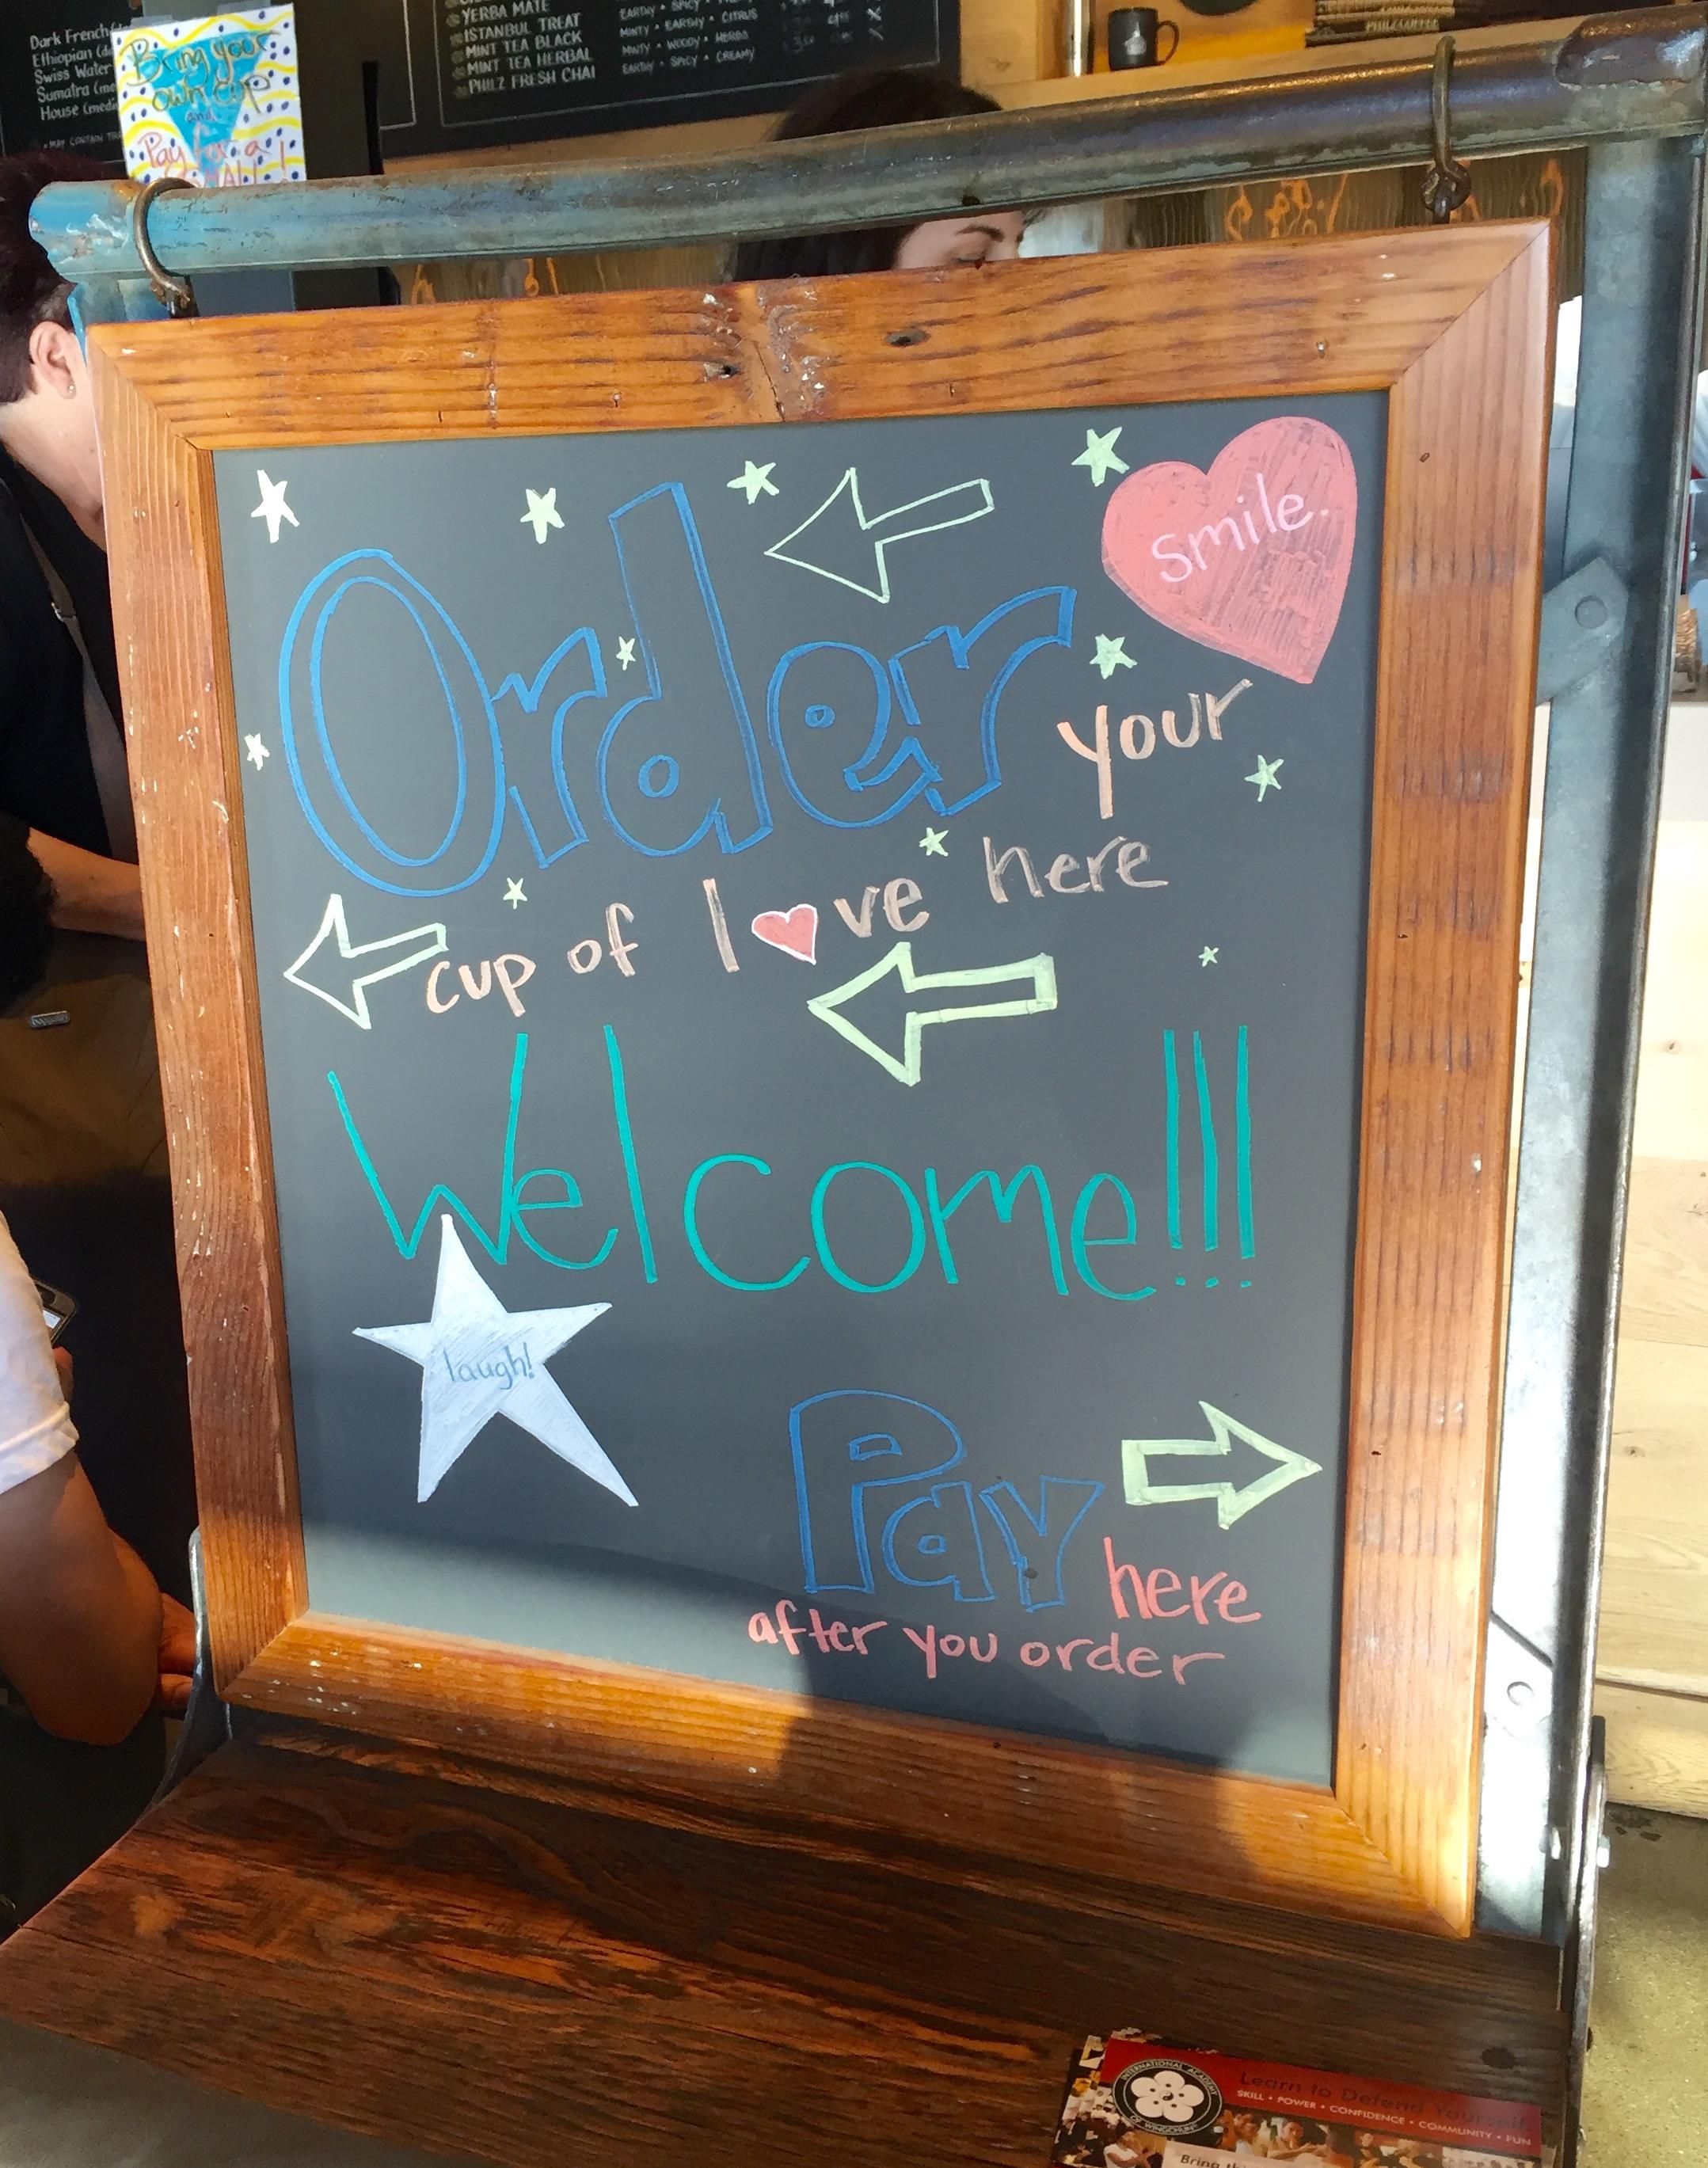 Dark French
Ethiopian
Swiss Water
Sumatra
House
MAY CONTAIN
Bring your
own cup
and
Pay for a
SMALL!
YERBA MATE
ISTANBUL TREAT
MINT TEA BLACK
MINT TEA HERBAL
PHILZ FRESH CHAI
EARTHY • SPICY •
MINTY • EARTHY • CITRUS
MINTY • WOODY • HERBS
EARTHY • SPICY • CREAMY
smile.
Order your
cup of love here
Welcome!!!
laugh!
Pay here
after you order
INTERNATIONAL ACADEMY
OF WINGCHUN
Learn to Defend Yourself
SKILL • POWER • CONFIDENCE • COMMUNITY • FUN
Bring